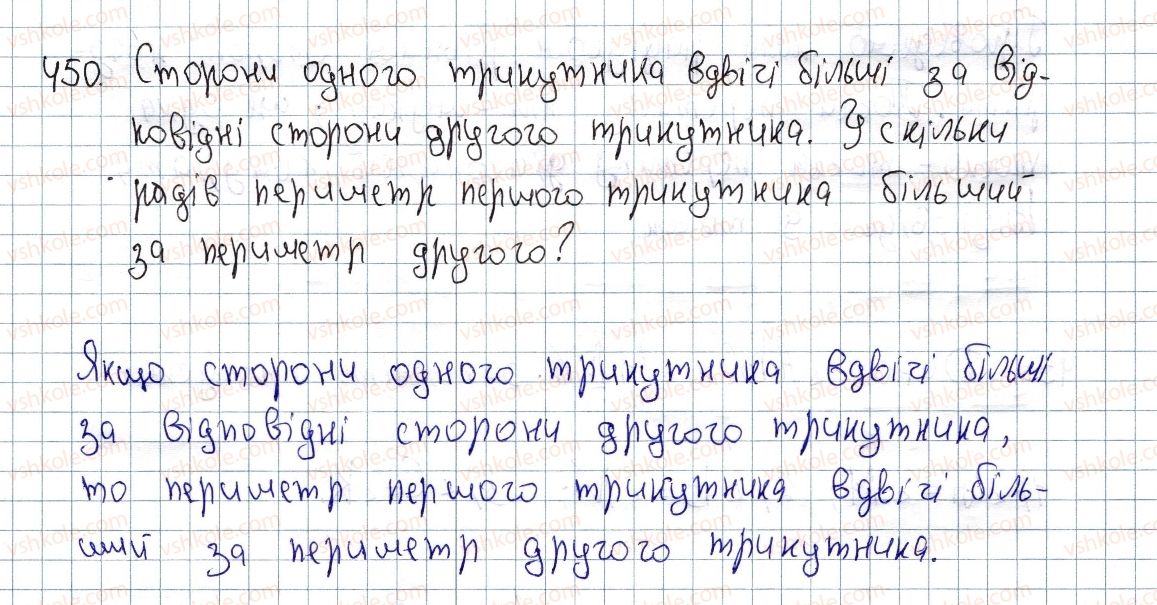 450. Сторони одного трикутника вдвічі більші за від-
повідні сторони другого трикутника. У скільки
разів периметр першого трикутника більший
за периметр другого?
Якщо сторони одного трикутника вдвічі більші
за відповідні сторони другого трикутника,
то периметр першого трикутника вдвічі біль-
ший за периметр другого трикутника.